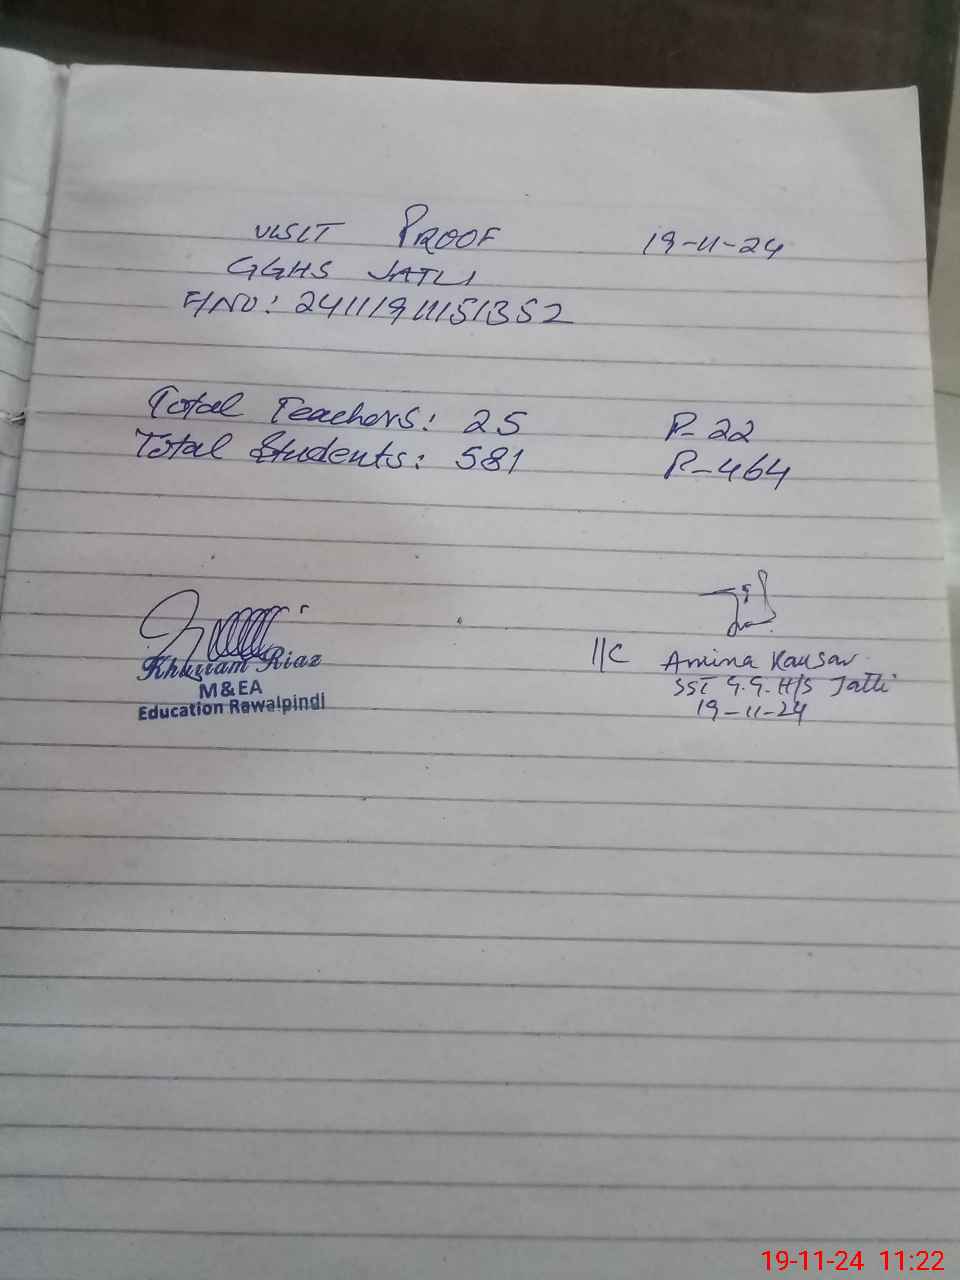 VISIT PROOF 19-11-24
GGHS JATLI
F/NO: 24111911151352
Total Teachers: 25 P-22
Total Students: 581 P-464
Khurram Riaz
M&EA
Education Rawalpindi
I/C Amina Kausar
SST G.G.H/S Jatli
19-11-24
19-11-24 11:22